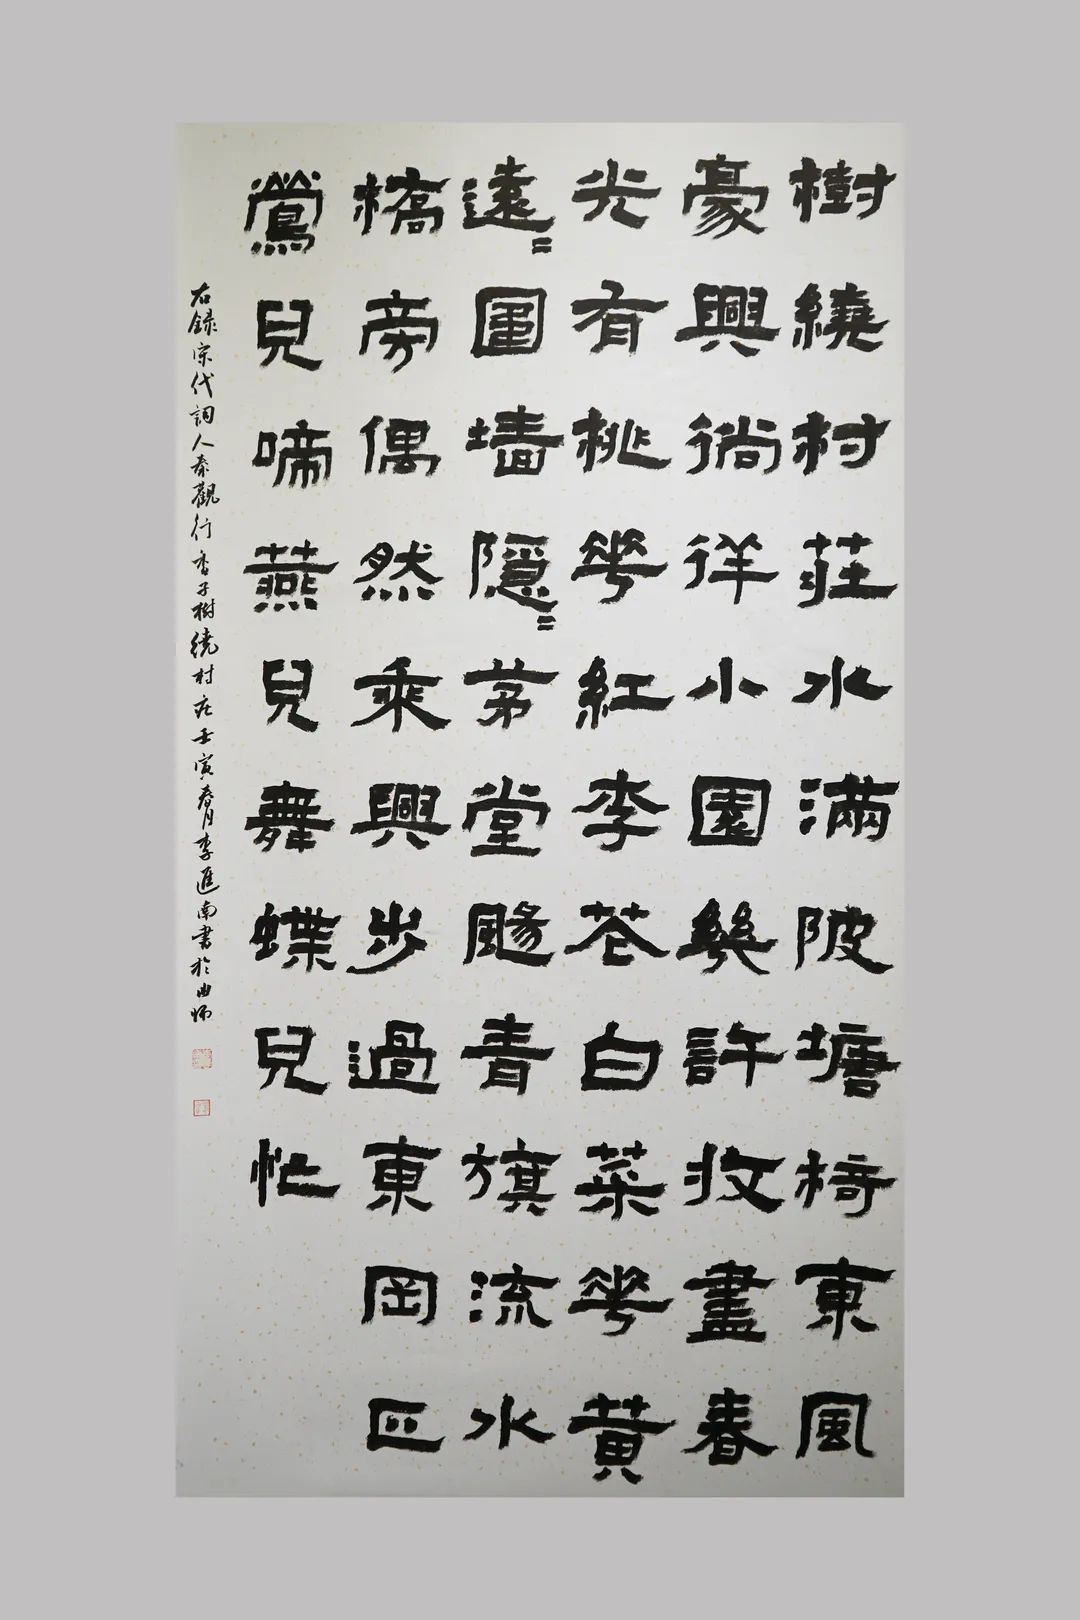 樹繞村莊水滿陂塘椅東風
豪興徜徉小園幾許收盡春
光有桃華紅李花白菜華黃
遠〻圍墙隱〻茅堂颺青旗流水
橋旁偶然乘興步過東岡正
鶯兒啼燕兒舞蝶兒忙
右録宋代詞人秦觀行香子樹繞村庄壬寅春月李進南書於曲師